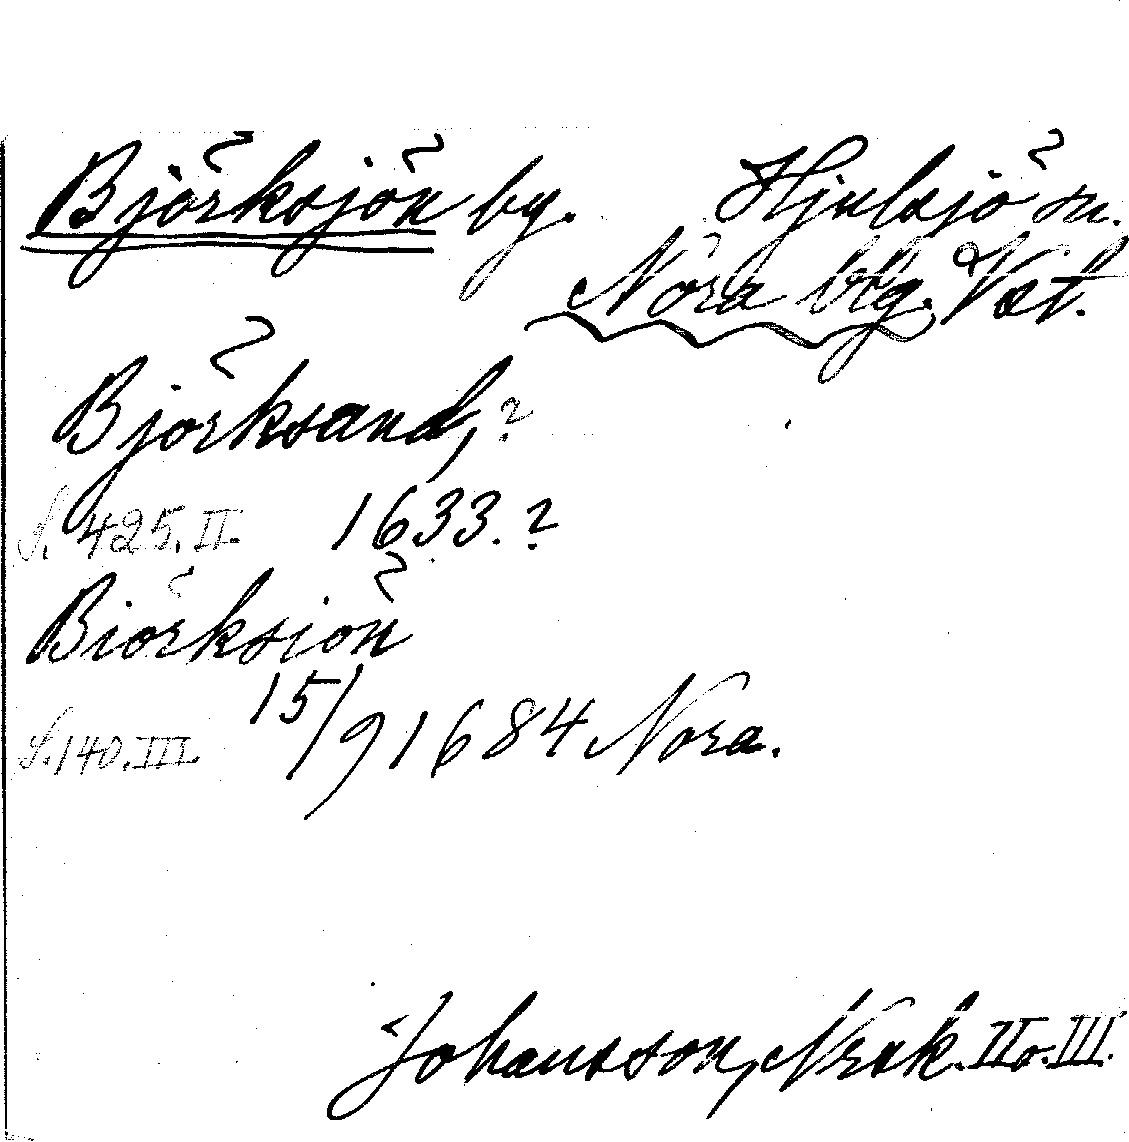 Björksjön by. Hjulsjö sn.
Nora btg. Vst.
Björksand,?
S. 425. II. 1633.?
Biörksiön
S. 140. III. 15/9 1684 Nora.
Johansson, Nrsk. II o. III.